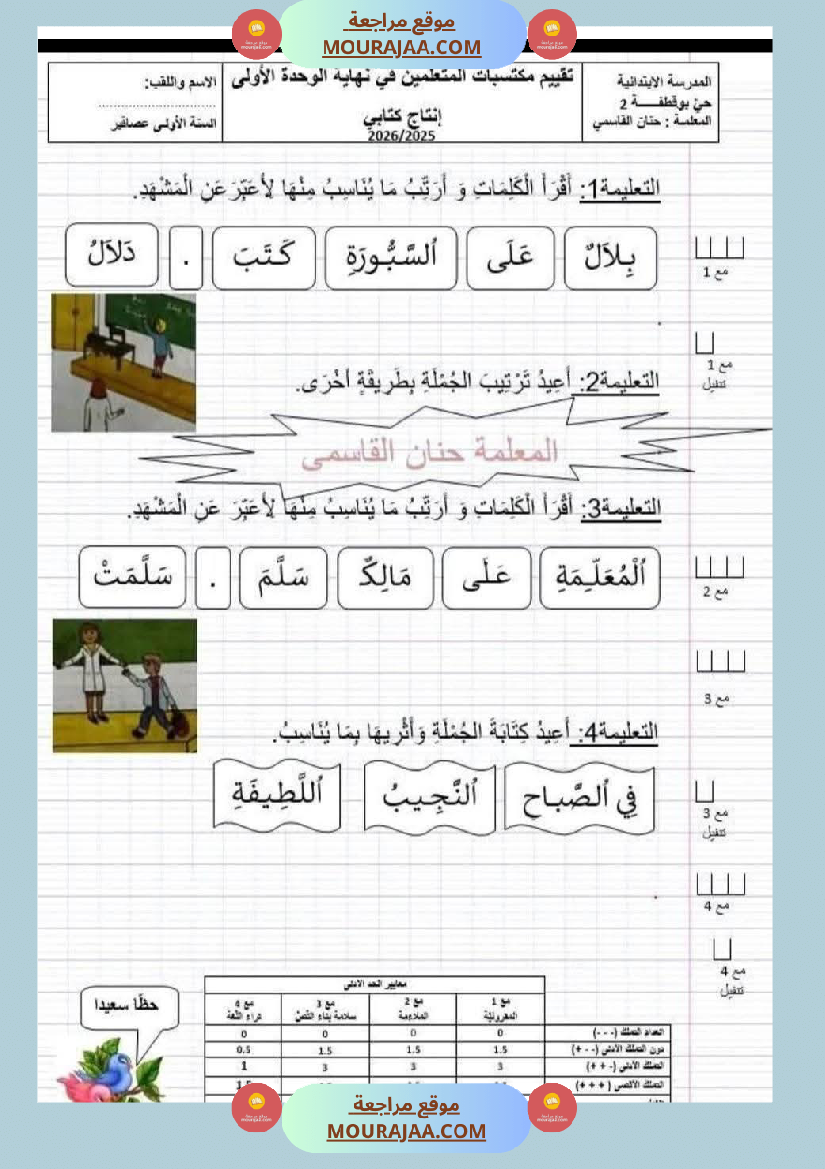 موقع مراجعة
MOURAJAA.COM
المدرسة الابتدائية
حيّ بوقطفــة 2
المعلمة : حنان القاسمي
تقييم مكتسبات المتعلمين في نهاية الوحدة الأولى
إنتاج كتابي
2026/2025
الاسم واللقب:
..............................
السنة الأولى عصافير
التعليمة1: أَقْرَأُ الْكَلِمَاتِ وَ أُرَتِّبُ مَا يُنَاسِبُ مِنْهَا لِأُعَبِّرَ عَنِ الْمَشْهَدِ.
بِلاَلٌ عَلَى اَلسَّبُّورَةِ كَتَبَ . دَلاَلُ
مع 1
.
مع 1
تنفيل
التعليمة2: أُعِيدُ تَرْتِيبَ الجُمْلَةِ بِطَرِيقَةٍ أُخْرَى.
المعلمة حنان القاسمي
التعليمة3: أَقْرَأُ الْكَلِمَاتِ وَ أُرَتِّبُ مَا يُنَاسِبُ مِنْهَا لِأُعَبِّرَ عَنِ الْمَشْهَدِ.
اَلْمُعَلِّمَةِ عَلَى مَالِكٌ سَلَّمَ . سَلَّمَتْ
مع 2
مع 3
التعليمة4: أُعِيدُ كِتَابَةَ الجُمْلَةِ وَأُثْرِيهَا بِمَا يُنَاسِبُ.
فِي اَلصَّبَاحِ اَلنَّجِيبُ اَللَّطِيفَةِ
مع 3
تنفيل
.
مع 4
مع 4
تنفيل
حظًا سعيدا
معايير الحد الأدنى
مع 1 مع 2 مع 3 مع 4
المقروئية الملاءمة سلامة بناء النصّ ثراء اللغة
انعدام التملك (- - -) 0 0 0 0
دون التملك الأدنى (- - +) 1.5 1.5 1.5 0.5
التملك الأدنى (- + +) 3 3 3 1
التملك الأقصى (+ + +)
موقع مراجعة
MOURAJAA.COM